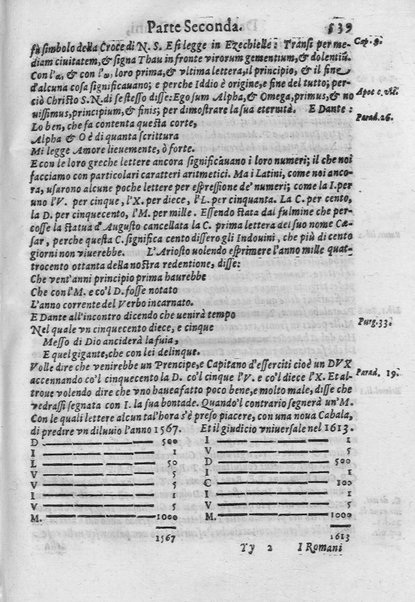 Parte Seconda. 539
fù simbolo della Croce di N. S. E si legge in Ezechielle: Transi per me- Cap. 9.
diam ciuitatem, & signa Thau in fronte virorum gementium, & dolentiũ.
Con l'α, & con l'ω, loro prima, & vltima lettera, il principio, & il fine
d'alcuna cosa significauano; e perche Iddio è origine, e fine del tutto, per-
ciò Christo S. N. di se stesso disse: Ego sum Alpha, & Omega, primus, & no Apoc. c. vlt.
uissimus, principium, & finis; per dimostrare la sua eternità. E Dante: Parad. 26.
Lo ben, che fa contenta questa corte,
Alpha & O è di quanta scrittura
Mi legge Amore lieuemente, ò forte.
E con le loro greche lettere ancora significauano i loro numeri; il che noi
facciamo con particolari caratteri aritmetici. Ma i Latini, come noi anco-
ra, usarono alcune poche lettere per espressione de' numeri; come la I. per
uno l'V. per cinque, l'X. per diece, l'L. per cinquanta. La C. per cento,
la D. per cinquecento, l'M. per mille. Essendo stata dal fulmine che per-
cosse la statua d'Augusto cancellata la C. prima lettera del suo nome Cæ-
sar, perche questa C. significa cento dissero gli Indouini, che più di cento
giorni non viuerebbe. L'Ariosto uolendo esprimere l'anno mille quat-
trocento ottanta della nostra redentione, disse:
Che vent'anni principio prima haurebbe
Che con l'M. e co'l D. fosse notato
L'anno corrente del Verbo incarnato.
E Dante all'incontro dicendo che uenirà tempo
Nel quale vn cinquecento diece, e cinque Purg. 33.
Messo di Dio anciderà la fuia,
E quel gigante, che con lei delinque.
Volle dire che venirebbe un Prencipe, e Capitano d'esserciti cioè un DVX
accennando co'l cinquecento la D. co'l cinque l'V. e co'l diece l'X. Et al- Parad. 19.
troue volendo dire che vno haueafatto poco bene, e molto male, disse che
vedrassi segnata con I. la sua bontade. Quando'l contrario segnerà un'M.
Con le quali lettere alcun tal'hora s'è preso piacere, con una noua Cabala,
di predire vn diluuio l'anno 1567. Et il giudicio vniuersale nel 1613.
D 500 I 1
I 1 V 5
L 50 D 500
V 5 I 1
V 5 C 100
I 1 I 1
V 5 V 5
M. 1000 M. 1000
1567 1613
Yy 2 I Romani